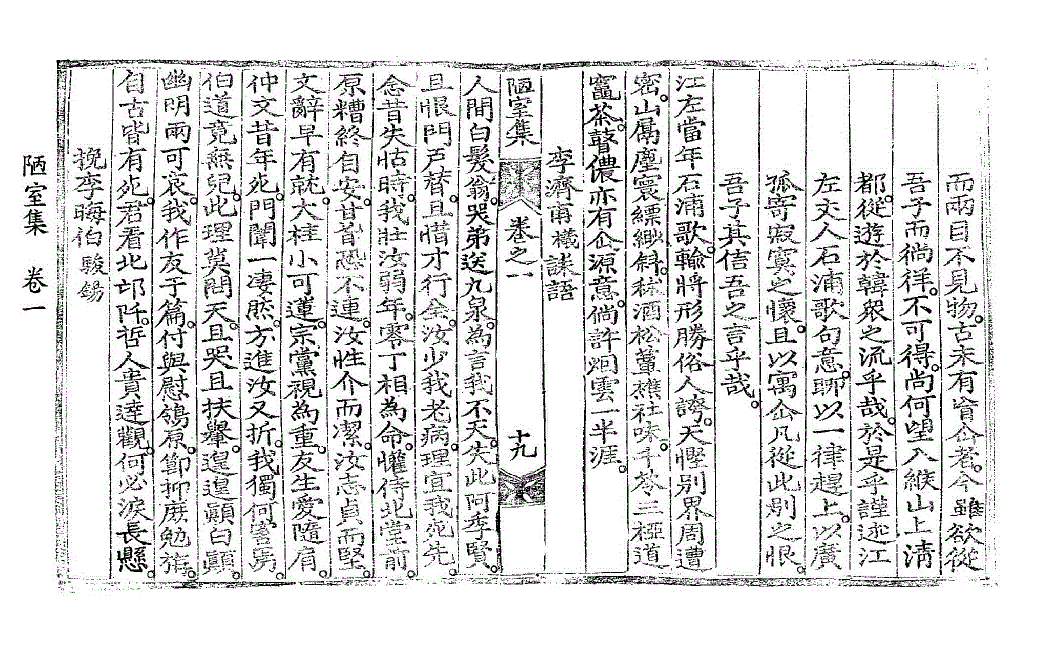 而兩目不見物。古未有盲仚者。今雖欲從
吾子而徜徉。不可得。尚何望入緱山上淸
都。從遊於韓衆之流乎哉。於是乎謹述江
左文人石浦歌句意。聊以一律趕上。以廣
孤寄寂寞之懷。且以寓仚凡從此別之恨
吾子其信吾之言乎哉。
江左當年石浦歌。輸將形勝俗人誇。天慳別界周遭
密。山屬塵寰縹緲斜。秫酒松薑樵社味。千苓三椏道
竈茶。瞽儂亦有仚源意。倘許烟雲一半涯。
李濟甫檥誄語
陋室集 卷之一 十九
人間白髮翁。哭弟送九泉。爲言我不天。失此阿季賢。
且恨門戶替。且惜才行全。汝少我老病。理宜我死先。
念昔失怙時。我壯汝弱年。零丁相爲命。懽侍北堂前。
原糟終自安。甘旨恐不連。汝性介而潔。汝志貞而堅。
文辭早有就。大桂小可蓮。宗黨視爲重。友生愛隨肩。
仲文昔年死。門闌一凄然。方進汝又折。我獨何罾焉。
伯道竟無兒。此理莫問天。且哭且扶轝。遑遑顚白顚。
幽明兩可哀。我作友于篇。付與慰鴒原。節抑庶勉旃。
自古皆有死。君看北邙阡。哲人貴達觀。何必淚長懸。
挽李晦伯駿錫
陋室集 卷一